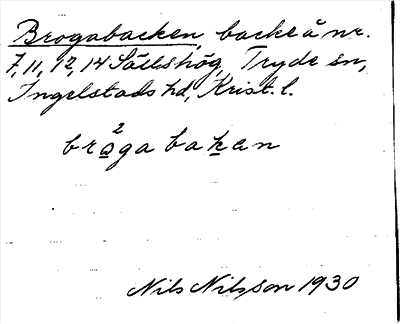 Brogabacken, backe å nr.
7, 11, 12, 14 Sällshög, Tryde sn,
Ingelstads hd, Krist. l.
bro²ga baken
Nils Nilsson 1930